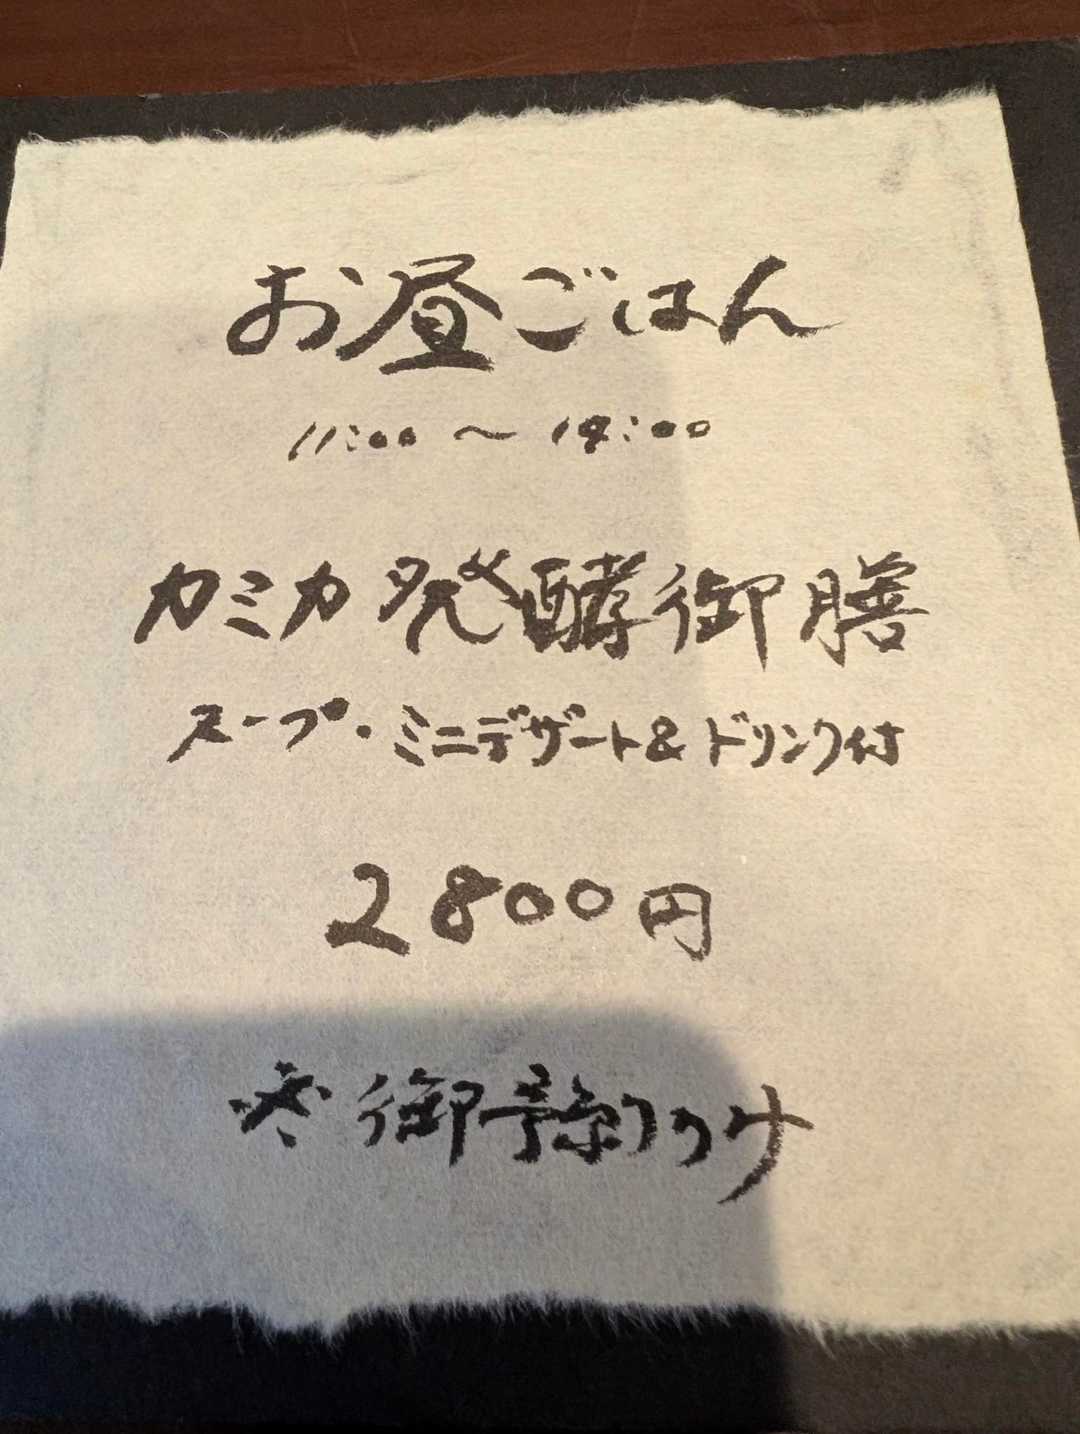 お昼ごはん
11:00 ～ 14:00
カミカ 発酵御膳
スープ・ミニデザート&ドリンク付
2800円
御予約